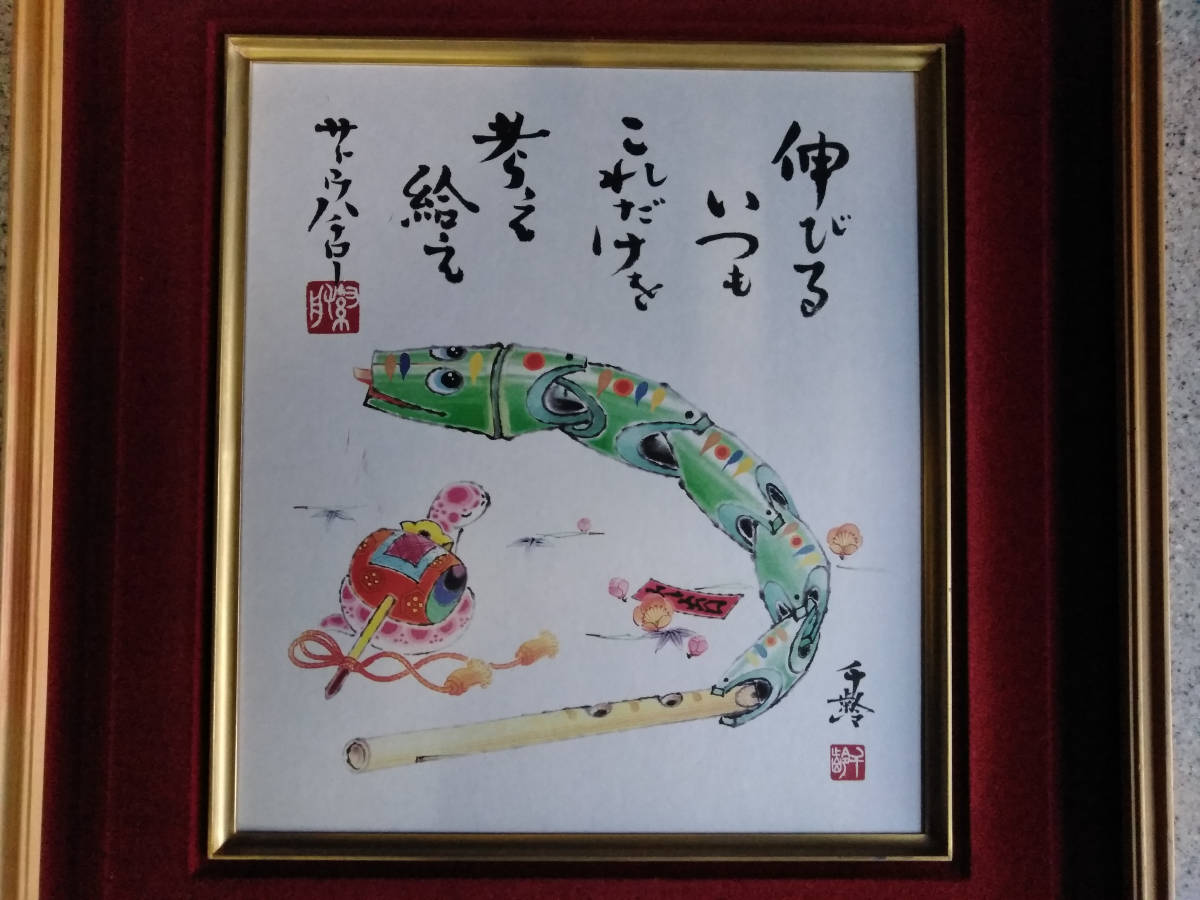 伸びる
いつも
これだけを
考え
給え
サトウハチロー
千齢